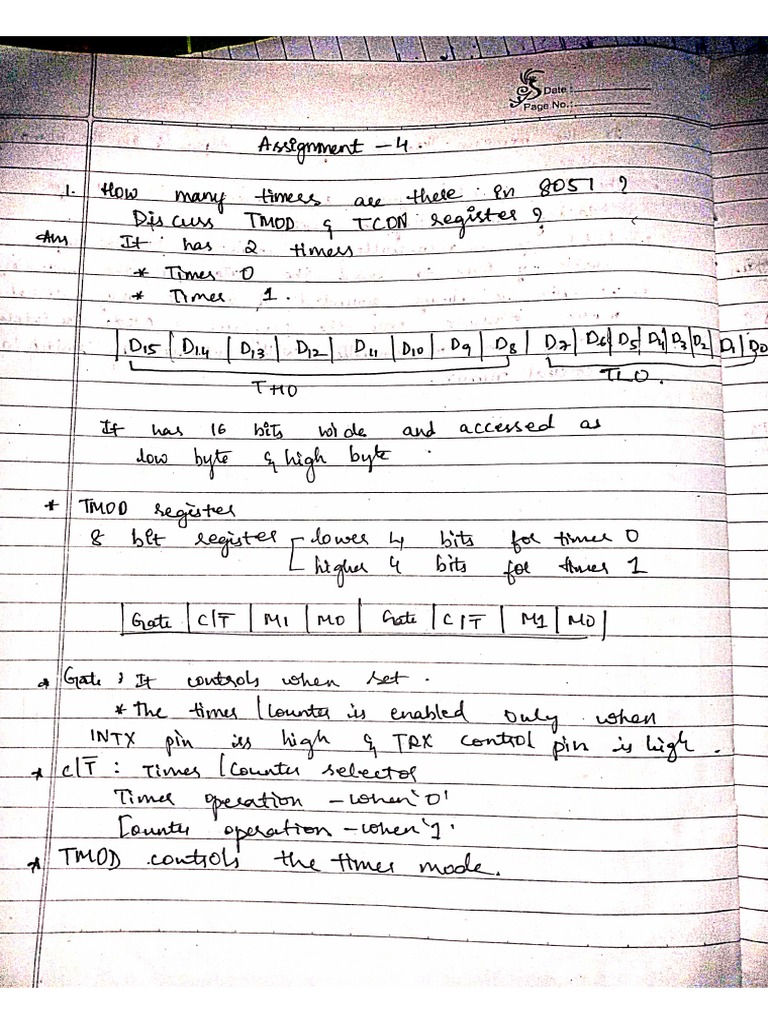 Date :
Page No.:
Assignment - 4.
1. How many timers are there in 8051 ?
Discuss TMOD & TCON register ?
Ans It has 2 timers
* Timer 0
* Timer 1.
| D15 | D14 | D13 | D12 | D11 | D10 | D9 | D8 | D7 | D6 | D5 | D4 | D3 | D2 | D1 | D0
TH0 TL0.
It has 16 bits wide and accessed as
low byte & high byte.
* TMOD register
8 bit register lower 4 bits for timer 0
higher 4 bits for timer 1
| Gate | C/T̅ | M1 | M0 | Gate | C/T̅ | M1 | M0 |
* Gate : It controls when set.
* The timer/counter is enabled only when
INTX pin is high & TRX control pin is high.
* C/T̅ : Timer/Counter selector
Timer operation - when '0'
Counter operation - when '1'
* TMOD controls the timer mode.